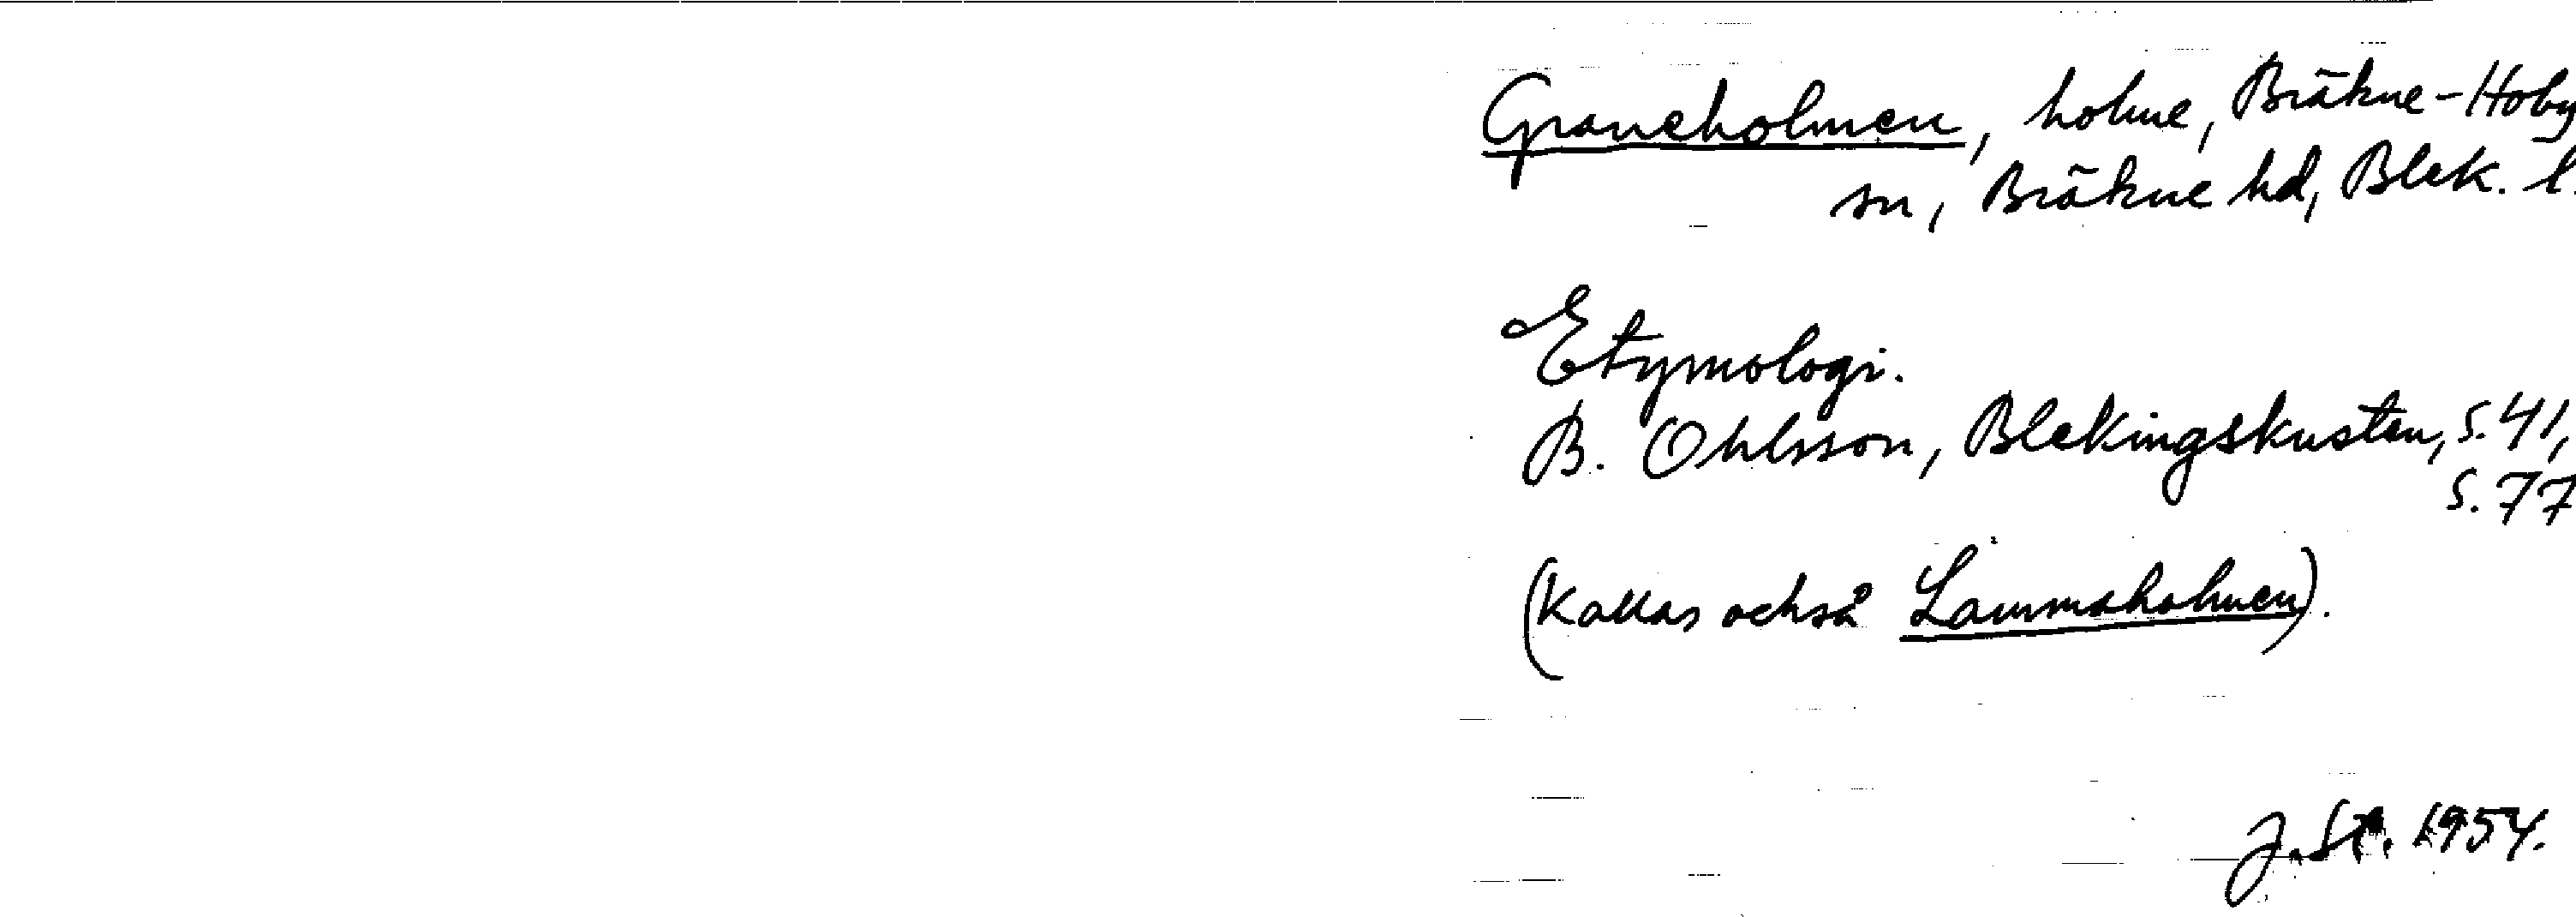 Graneholmen, holme, Bräkne-Hoby
sn, Bräkne hd, Blek. l.
Etymologi.
B. Ohlsson, Blekingskusten, s. 41,
s. 77
(Kallas också Lammaholmen).
J. St. 1954.